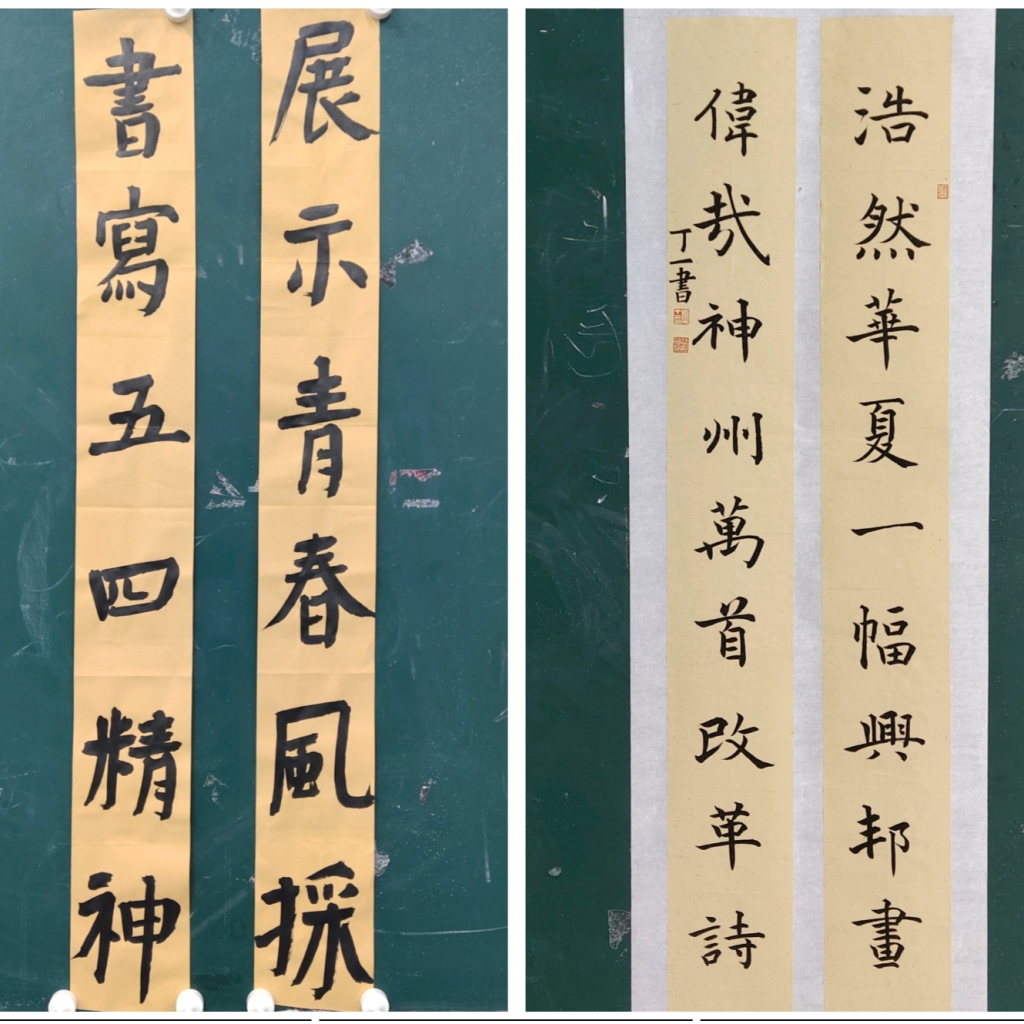 展示青春風採
書寫五四精神
浩然華夏一幅興邦畫
偉哉神州萬首改革詩
丁一書